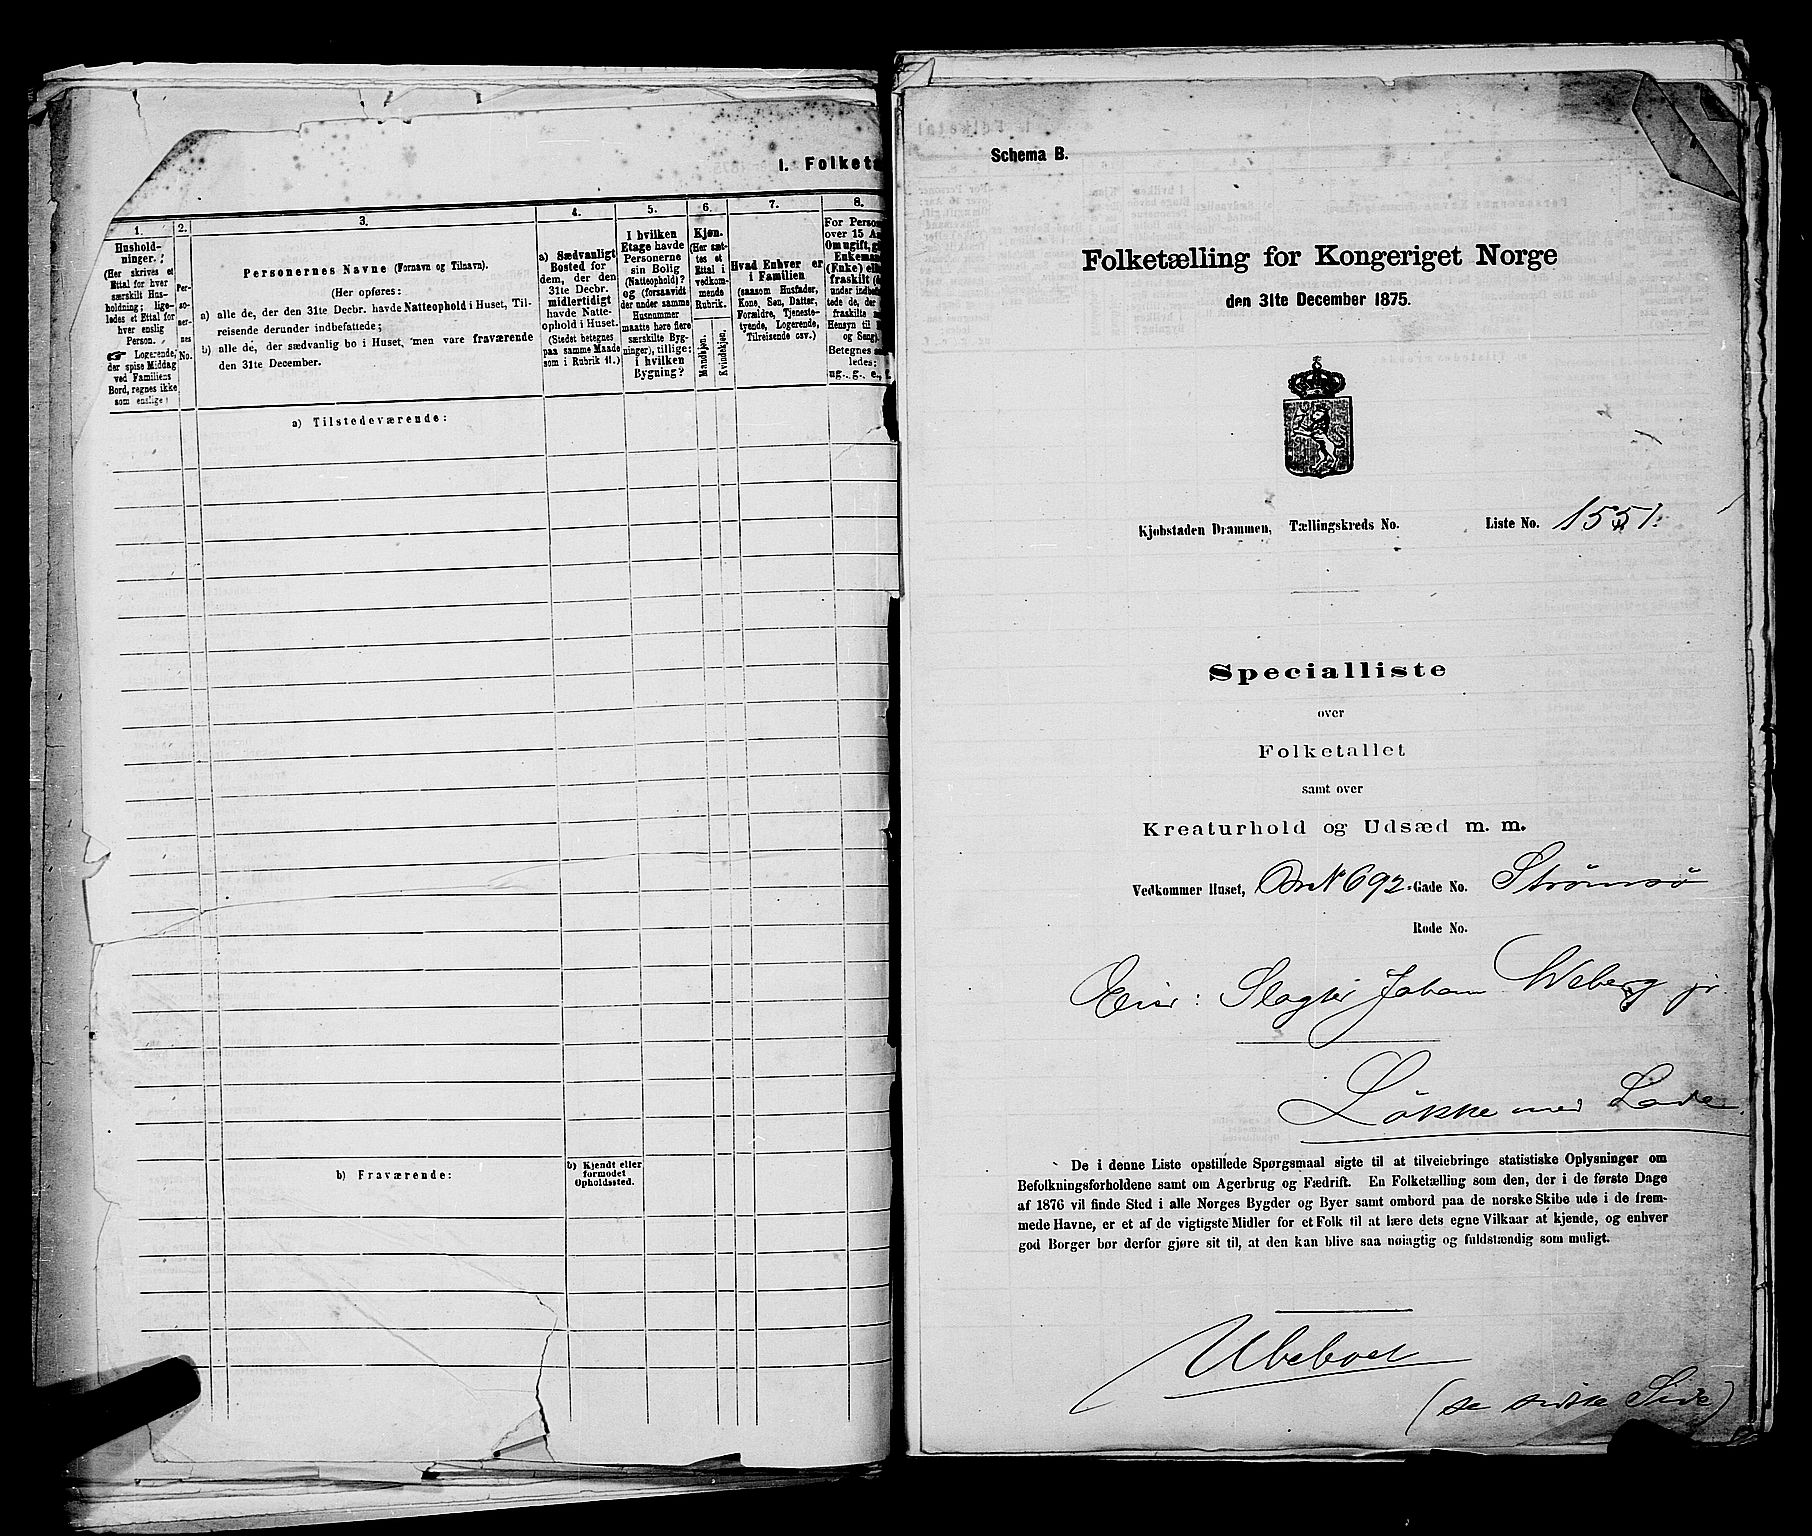 I. Folketa
1.
2.
3.
4.
5.
6.
7.
8.
Hushold-
ninger.
(Her skrives et
Ettal for hver
særskilt Hus-
holdning; lige-
ledes et Ettal for
hver enslig
Person.
☞ Logerende,
der spise Middag
ved Familiens
Bord, regnes ikke
som enslige)
Per-
so-
ner-
nes
No.
Personernes Navne (Fornavn og Tilnavn).
(Her opføres:
a) alle de, der den 31te Decbr. havde Natteophold i Huset, Til-
reisende derunder indbefattede;
b) alle de, der sædvanlig bo i Huset, men vare fraværende
den 31te December.
a) Sædvanligt
Bosted for
dem, der den
31te Decbr.
midlertidigt
havde Natte-
ophold i Huset.
(Stedet betegnes
paa samme Maade
som i Rubrik 11.)
I hvilken
Etage havde
Personerne
sin Bolig
(Natteophold)?
og (forsaavidt
der under samme
Husnummer
maatte høre flere
særskilte Byg-
ninger), tillige:
i hvilken
Bygning?
Kjøn.
(Her sæt-
tes et
Ettal i
vedkom-
mende
Rubrik.
Mandkjøn.
Kvindekjøn.
Hvad Enhver er
i Familien
(saasom Husfader,
Kone, Søn, Datter,
Forældre, Tjeneste-
tyende, Logerende,
Tilreisende osv.)
For Person
over 15 Aa
Om ugift, gi
Enkeman
(Enke) elle
fraskilt (
under indbefat
tede de, der
fraskilte
Hensyn til
og Seng).
Betegnes
ledes:
ug., g., e., f.
a) Tilstedeværende:
b) Fraværende:
b) Kjendt eller
formodet
Opholdssted.
Schema B.
Folketælling for Kongeriget Norge
den 31te December 1875.
Kjøbstaden Drammen, Tællingskreds No. Liste No. 1551.
Specialliste
over
Folketallet
samt over
Kreaturhold og Udsæd m. m.
Vedkommer Huset, Br N 692. Gade No. Strømsø
Rode No.
Eier: Slagter Johan Weberg jr.
Løkke med Lade.
De i denne Liste opstillede Spørgsmaal sigte til at tilveiebringe statistiske Oplysninger om
Befolkningsforholdene samt om Agerbrug og Fædrift. En Folketælling som den, der i de første Dage
af 1876 vil finde Sted i alle Norges Bygder og Byer samt ombord paa de norske Skibe ude i de frem-
mede Havne, er et af de vigtigste Midler for et Folk til at lære dets egne Vilkaar at kjende, og enhver
god Borger bør derfor gjøre sit til, at den kan blive saa nøiagtig og fuldstændig som muligt.
Ubeboet
(se sidste Side)